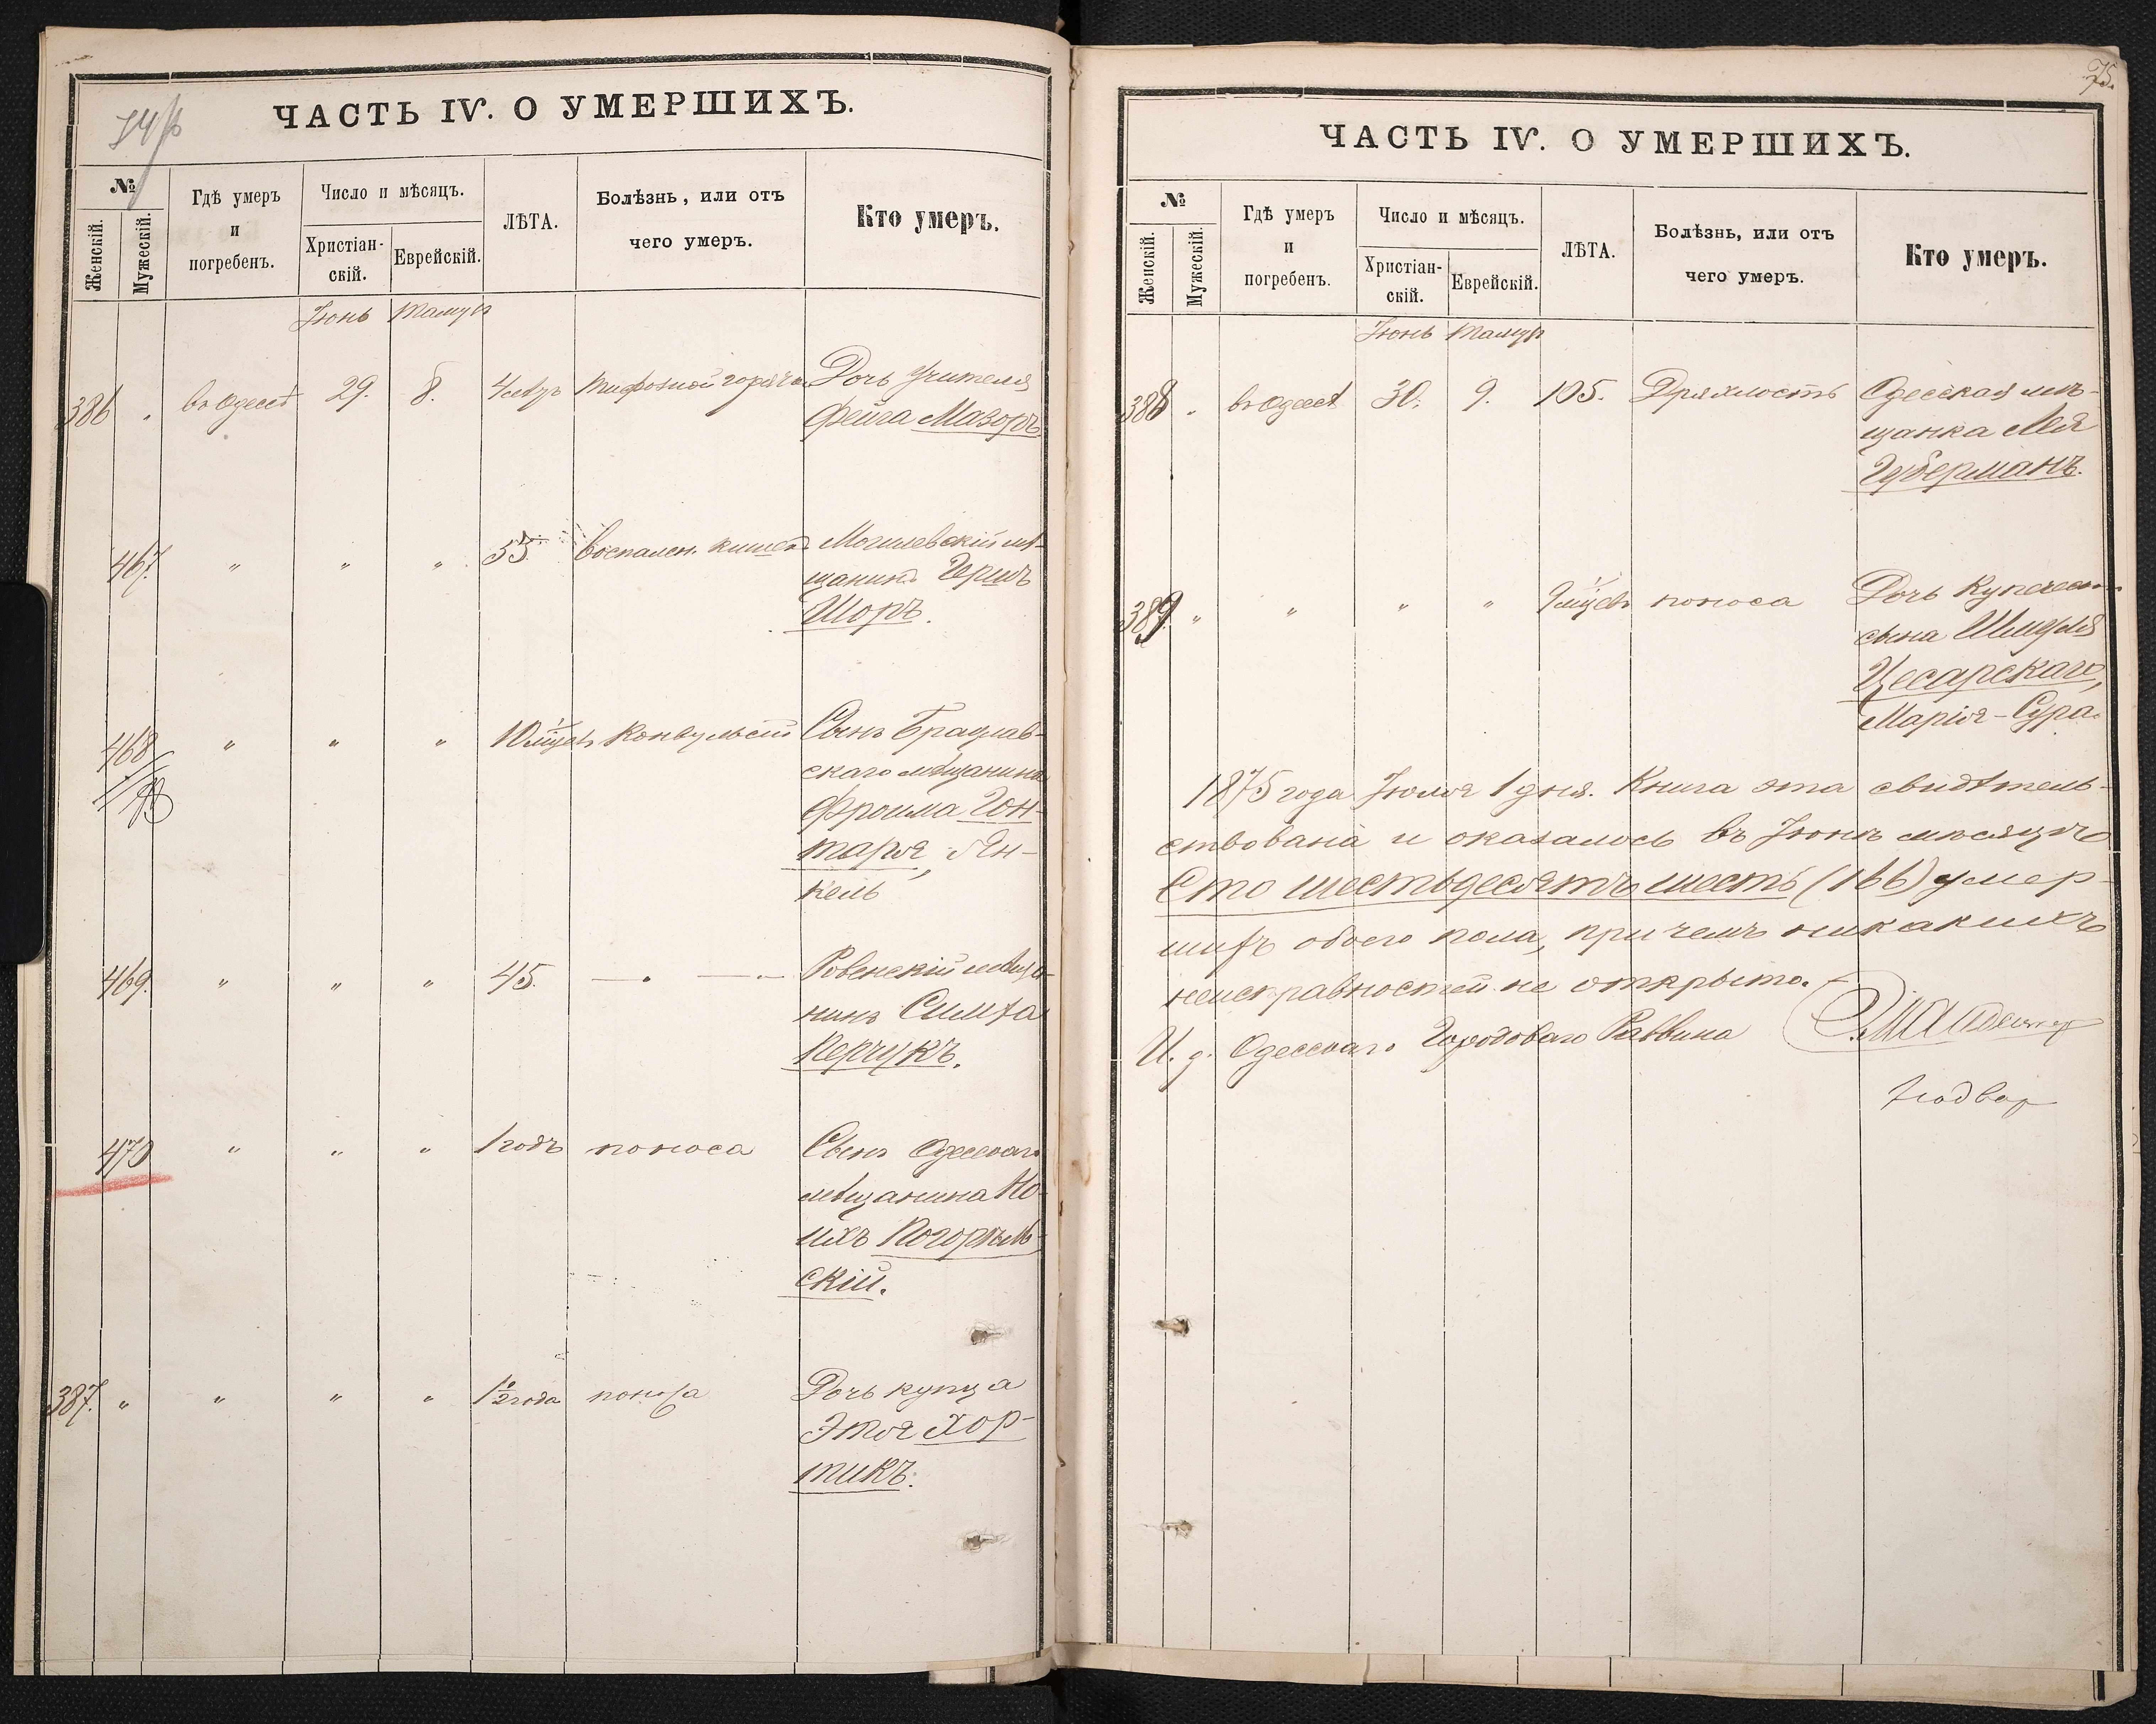 ЧАСТЬ IV. О УМЕРШИХЪ.
№
Женскій.
Мужескій.
Гдѣ умеръ
и
погребенъ.
Число и мѣсяцъ.
Христіан-
скій.
Еврейскій.
ЛѢТА.
Болѣзнь, или отъ
чего умеръ.
Кто умеръ.
Іюнь Тамузъ
386 " въ Одессѣ 29. 8. Тифозной горяч Дочь Учителя
Фейга Мазоръ
467. " " " 55. Воспален. кишекъ Могилевскій мѣ-
щанинъ Гершъ
Шоръ.
468 " " " 10 мѣсцъ Конвульсій Сынъ Брацлав-
скаго мѣщанина
Фроима Гон-
таря, Ян-
кель
469. " " " 45. — " — " Ровенскій мѣща-
нинъ Симха
Керчукъ.
470 " " " 1 годъ поноса Сынъ Одесскаго
мѣщанина Но-
ихъ Погорѣль-
скій.
387. " " " " 1½ года поноса Дочь купца
Этя Хор-
тикъ.
75.
ЧАСТЬ IV. О УМЕРШИХЪ.
№
Женскій.
Мужескій.
Гдѣ умеръ
и
погребенъ.
Число и мѣсяцъ.
Христіан-
скій.
Еврейскій.
ЛѢТА.
Болѣзнь, или отъ
чего умеръ.
Кто умеръ.
Іюнь Тамузъ
388 " въ Одессѣ 30. 9. 105. Дряхлость Одесская мѣ-
щанка Лея
Губерманъ.
389. " " " " 9 мѣсцъ поноса Дочь Купеческ
сына Шмуля
Цесарскаго,
Марія-Сура
1875 года Іюля 1 дня. Книга эта свидѣтель-
ствована и оказалось въ Іюнѣ мѣсяцѣ
Сто шестьдесятъ шесть (166) умер-
шихъ обоего пола, при чемъ никакихъ
неисправностей не открыто.
И. д. Одесскаго Городоваго Раввина